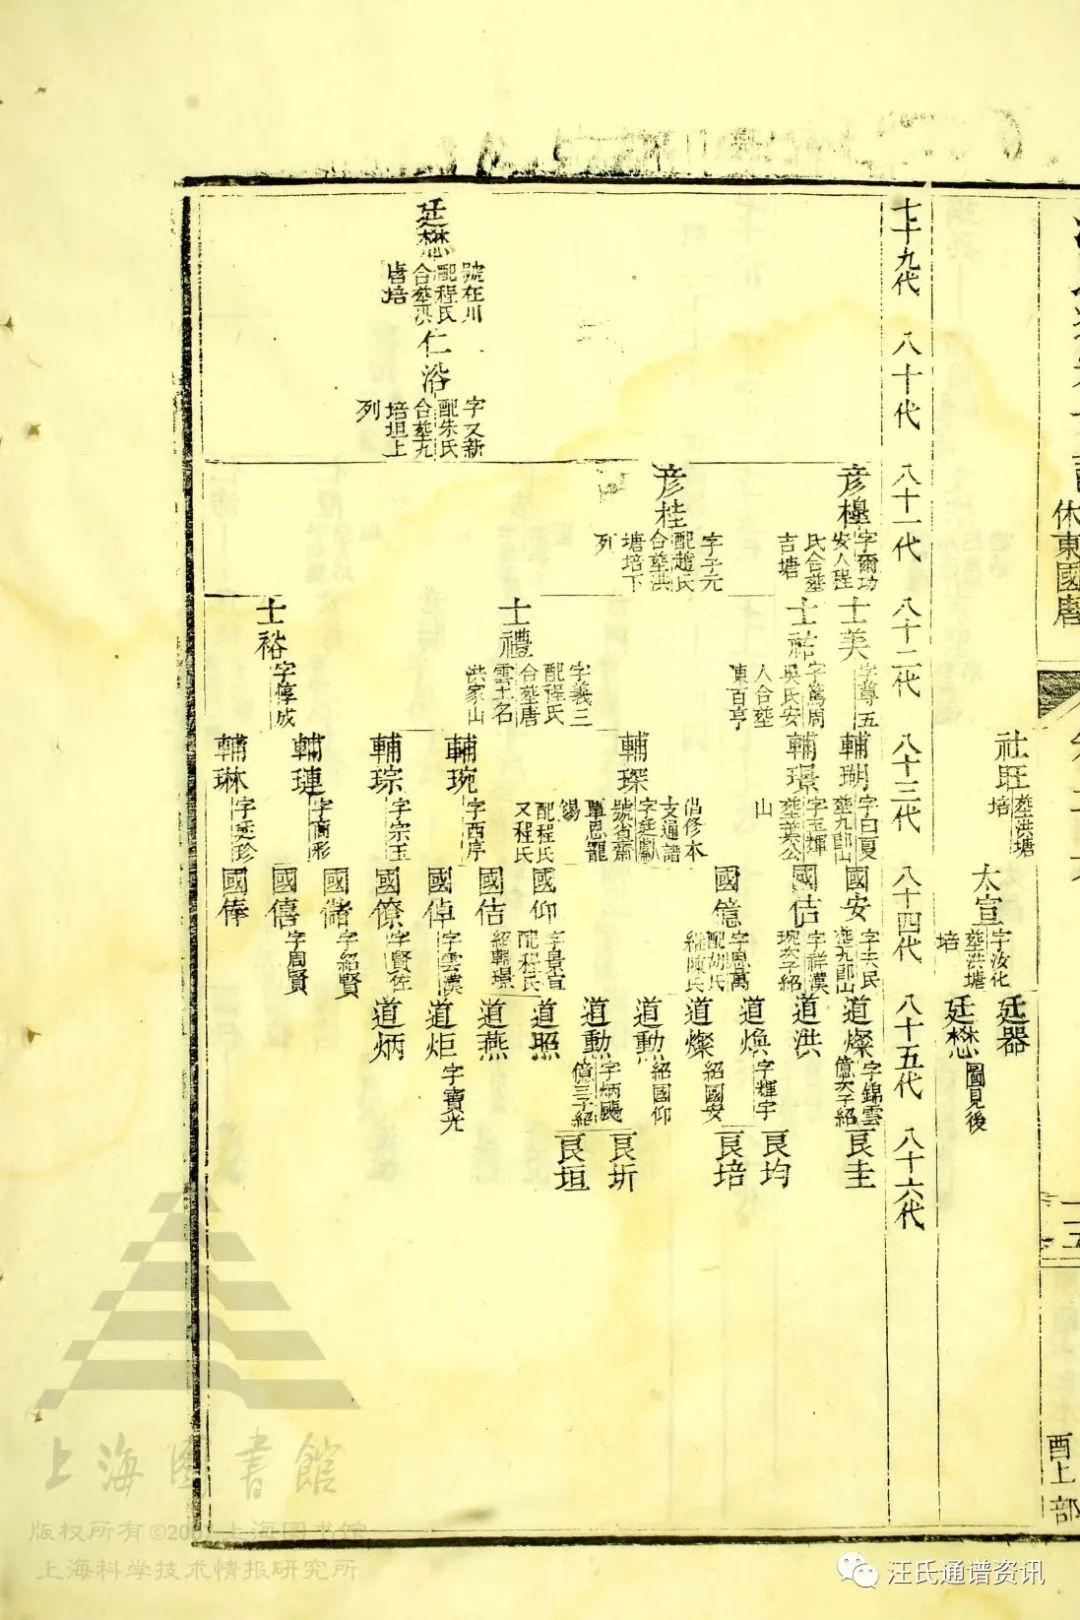 休東國唐
酉上部
社旺
塟洪塘
培
太宣
字汝化
塟洪塘
培
廷器
廷懋
圖見後
七十九代
八十代
八十一代
八十二代
八十三代
八十四代
八十五代
八十六代
廷懋
號在川
配程氏
合塟洪
唐培
仁浴
字又新
配朱氏
合塟九
培坦上
列
彦檯
字爾功
安人程
氏合塟
吉塘
彦桂
字子元
配趙氏
合塟洪
塘培下
列
士美
字尊五
士祜
字篤周
吳氏安
人合塟
東百亨
士禮
字義三
配程氏
合塟唐
雲土名
洪家山
士裕
字惇成
輔瑚
字曰夏
塟九郎山
輔璟
字玉輝
塟葉公
山
輔琛
倡修本
支通譜
字廷獻
號省齋
覃恩寵
錫
配程氏
又程氏
輔琬
字西序
輔琮
字宗玉
輔璉
字商彩
輔琳
字廷珍
國安
字天民
塟九郎山
國佶
字祥漢
琬次子紹
國億
字恩萬
配胡氏
繼陳氏
國仰
字景宣
配程氏
國佶
紹輔璟
國倬
字雲漢
國僚
字賢佐
國儲
字紹賢
國僖
字周賢
國俸
道燦
字錦雲
億次子紹
道洪
道煥
字輝宇
道燦
紹國安
道勳
紹國仰
道勳
字炳颺
億三子紹
道照
道燕
道炬
字寶光
道炳
良圭
良均
良培
良圻
良垣
上海图書館
版权所有©20 上海图书馆
上海科学技术情报研究所
汪氏通谱资讯